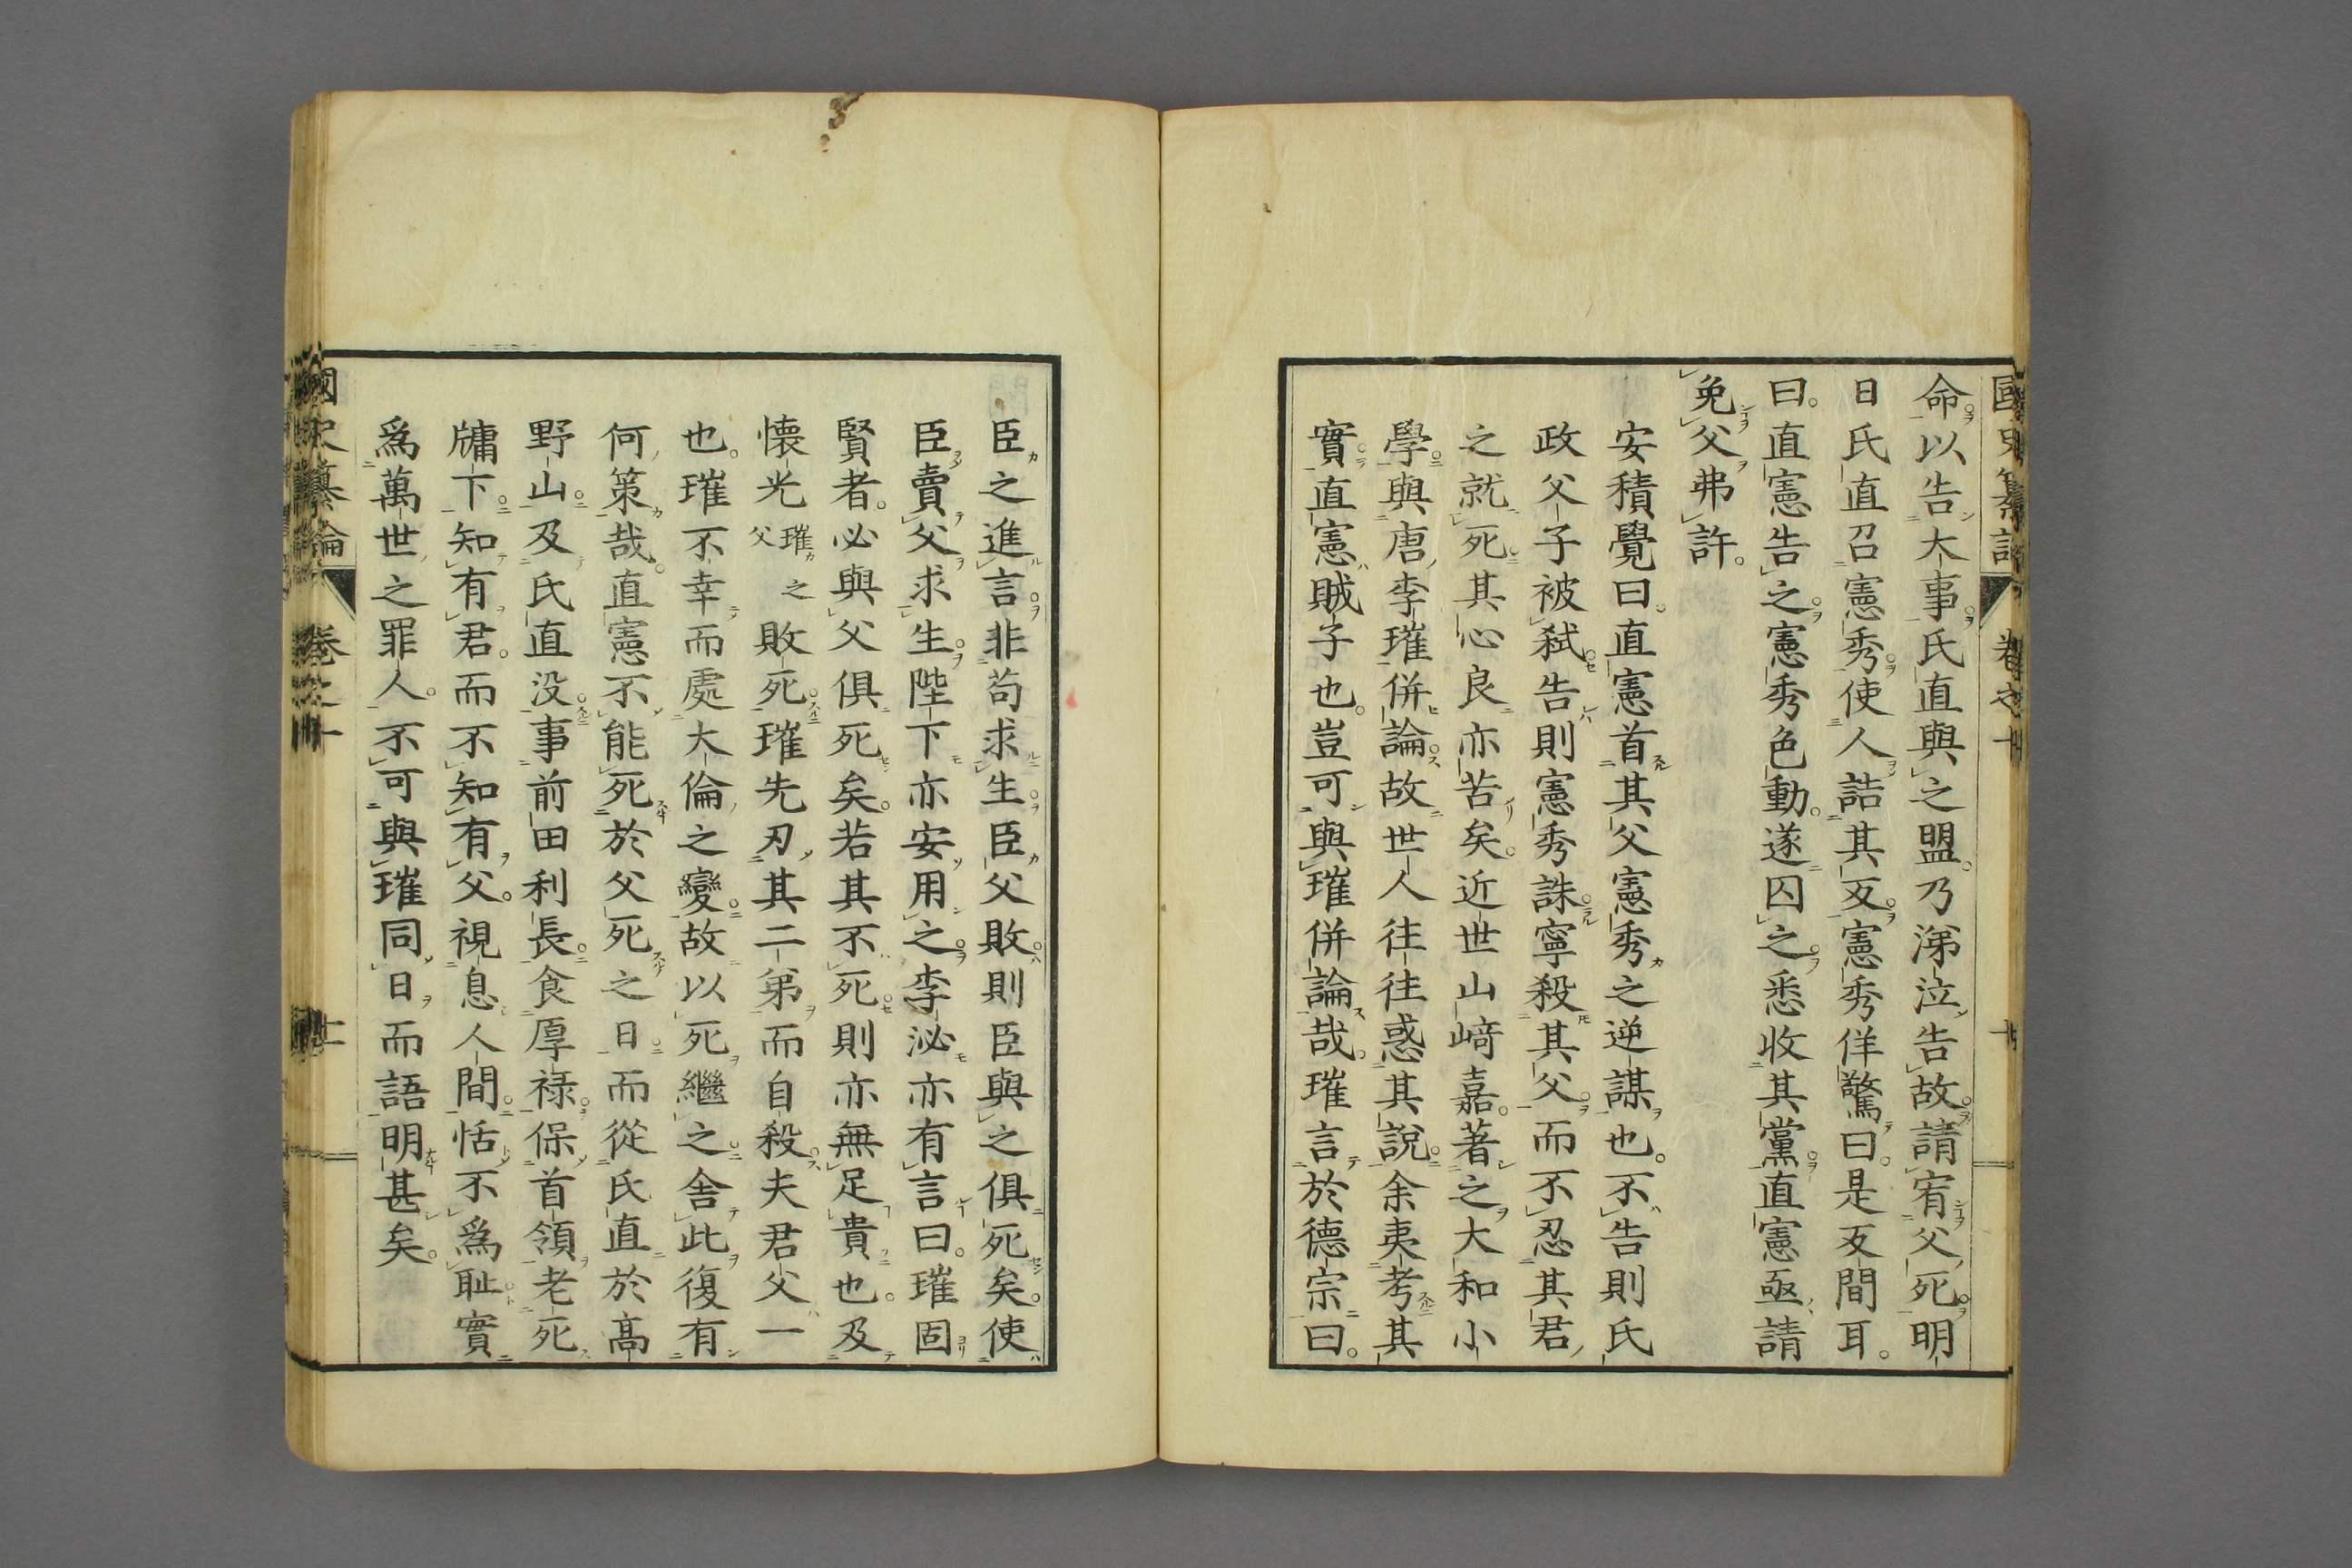 命以告大事氏直與之盟。乃涕泣告故請宥父死明
日氏直召憲秀使人詰其反憲秀佯驚曰。是反間耳。
曰。直憲告之憲秀色動。遂囚之悉收其黨直憲亟請
免父弗許。
安積覺曰。直憲首其父憲秀之逆謀也。不告則氏
政父子被弑告則憲秀誅寧殺其父而不忍其君
之就死其心良亦苦矣。近世山﨑嘉。著之大和小
學與唐李璀併論故世人往往惑其說余夷考其
實直憲賊子也。豈可與璀併論哉。璀言於德宗曰。
臣之進言非苟求生臣父敗則臣與之俱死矣。使
臣賣父求生陛下亦安用之李泌亦有言曰。璀固
賢者。必與父俱死矣。若其不死則亦無足貴也。及
懷光璀之父敗死璀先刃其二弟而自殺夫君父一
也。璀不幸而處大倫之變故以死繼之舍此復有
何策哉。直憲不能死於父死之日而從氏直於高
野山及氏直没事前田利長食厚禄保首領老死
牖下知有君。而不知有父。視息人間恬不爲耻實
爲萬世之罪人。不可與璀同日而語明甚矣。